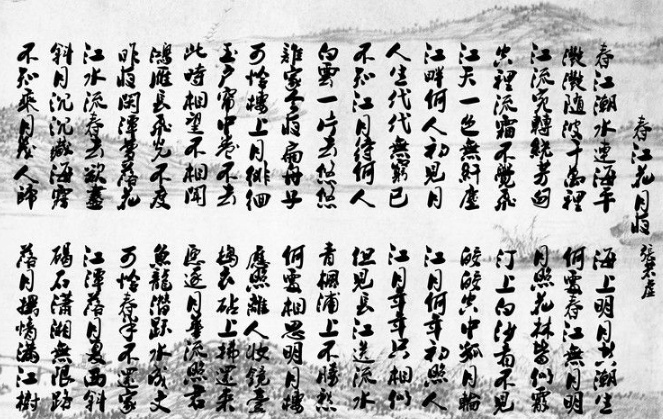 春江花月夜 張若虛
春江潮水連海平
海上明月共潮生
灩灩随波千萬裡
何處春江無月明
江流宛轉繞芳甸
月照花林皆似霰
空裡流霜不覺飛
汀上白沙看不見
江天一色無纖塵
皎皎空中孤月輪
江畔何人初見月
江月何年初照人
人生代代無窮已
江月年年只相似
不知江月待何人
但見長江送流水
白雲一片去悠悠
青楓浦上不勝愁
誰家今夜扁舟子
何處相思明月樓
可憐樓上月徘徊
應照離人妝鏡臺
玉戶簾中卷不去
搗衣砧上拂還來
此時相望不相聞
願逐月華流照君
鴻雁長飛光不度
魚龍潛躍水成文
昨夜閑潭夢落花
可憐春半不還家
江水流春去欲盡
江潭落月復西斜
斜月沉沉藏海霧
碣石瀟湘無限路
不知乘月幾人歸
落月搖情滿江樹